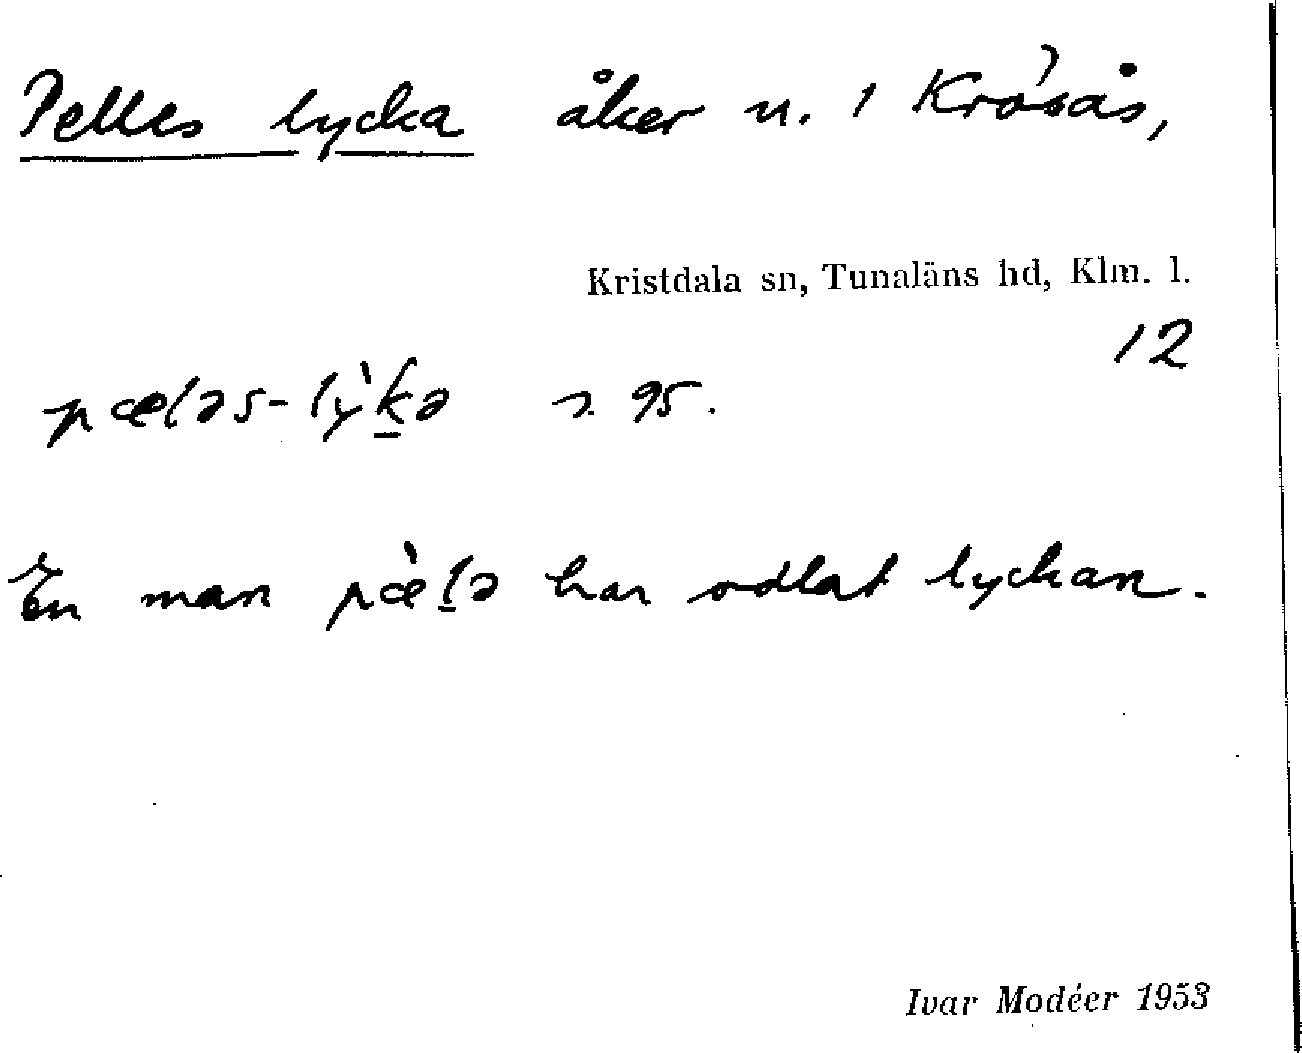 Pelles lycka åker n. i Krösås,
Kristdala sn, Tunaläns hd, Klm. l.
12
pæləs-lỳk̲ə s. 95.
En man pæ̀l̲ə har odlat lyckan.
Ivar Modéer 1953